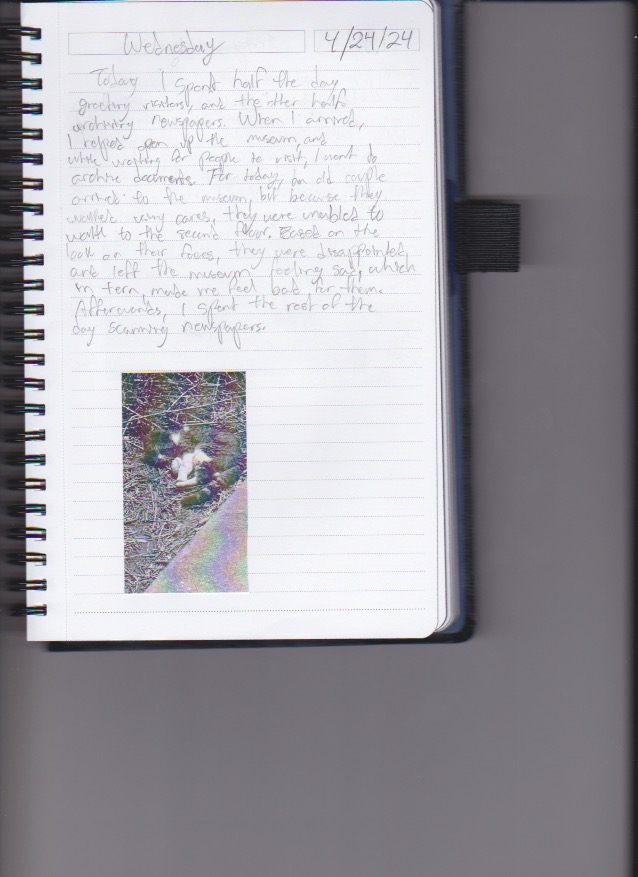 Wednesday
4/24/24
Today I spent half the day
greeting visitors, and the other half
archiving newspapers. When I arrived,
I helped open up the museum, and
while waiting for people to visit, I went to
archive documents. For today, an old couple
arrived to the museum, but because they
walked using canes, they were unabled to
walk to the second floor. Based on the
look on their faces, they were disappointed
and left the museum feeling sad, which
in tern, made me feel bad for them.
Afterwards, I spent the rest of the
day scanning newspapers.